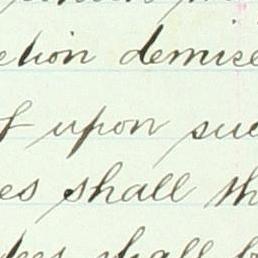 etion demise
f upon suc
es shall th
shall b